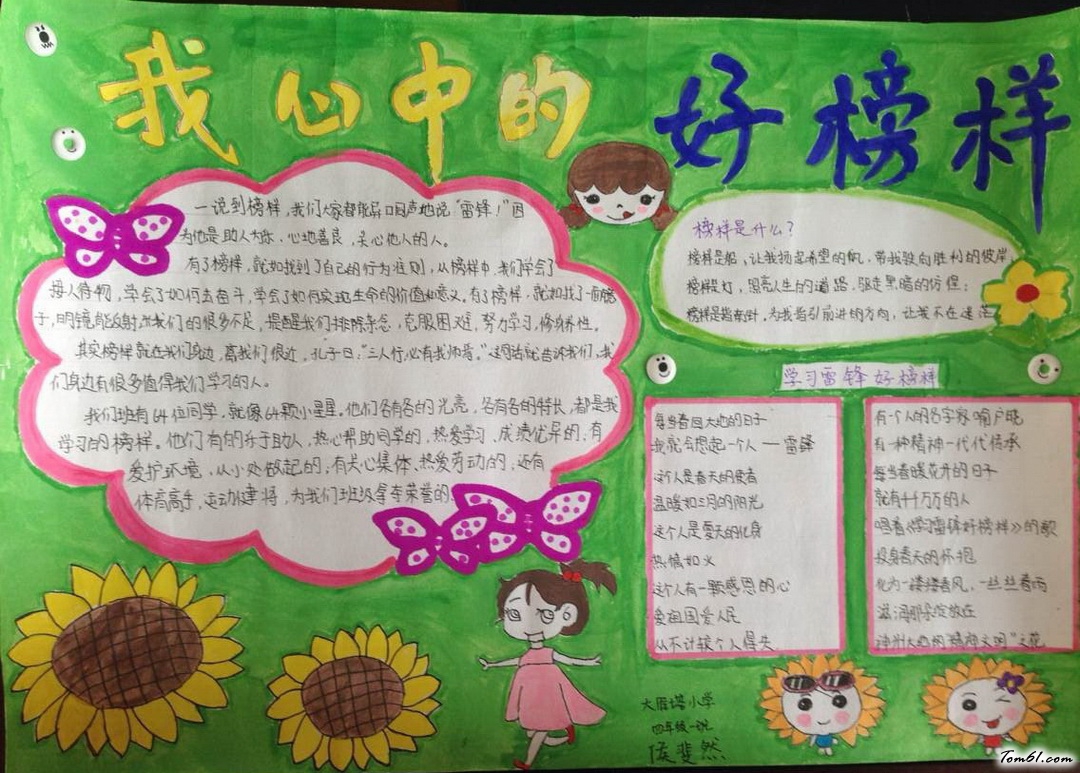 我心中的好榜样
一说到榜样，我们大家都能异口同声地说“雷锋！”因
为他是助人为乐，心地善良，关心他人的人。
有了榜样，就如找到了自己的行为准则，从榜样中，我们学会了
接人待物，学会了如何去奋斗，学会了如何实现生命的价值和意义，有了榜样，就如找了一面镜
子，明镜能反射出我们的很多不足，提醒我们排除杂念，克服困难，努力学习，修身养性。
其实榜样就在我们身边，离我们很近，孔子曰：“三人行，必有我师焉。”这句话就告诉我们，我
们身边有很多值得我们学习的人。
我们班有64位同学，就像64颗小星星。他们各有各的光亮，各有各的特长，都是我
学习的榜样。他们有的乐于助人，热心帮助同学的，热爱学习、成绩优异的；有
爱护环境，从小处做起的；有关心集体、热爱劳动的；还有
体育高手，运动健将，为我们班级拿夺荣誉的
榜样是什么？
榜样是船，让我扬起希望的帆，带我驶向胜利的彼岸
榜样是灯，照亮人生的道路，驱走黑暗的彷徨；
榜样是指南针，为我指引前进的方向，让我不在迷茫
学习雷锋好榜样
每当春回大地的日子
我就会想起一个人——雷锋
这个人是春天的使者
温暖如三月的阳光
这个人是夏天的化身
热情如火
这个人有一颗感恩的心
爱祖国爱人民
从不计较个人得失
有个人的名字家喻户晓
有一种精神一代代传承
每当春暖花开的日子
就有千千万万的人
唱着《学习雷锋好榜样》的歌
投身春天的怀抱
化为一缕缕春风，一丝丝春雨
滋润那朵绽放在
神州大地的精神文明“之花
大雁塔小学
四年级一班
侯斐然
Tom61.com